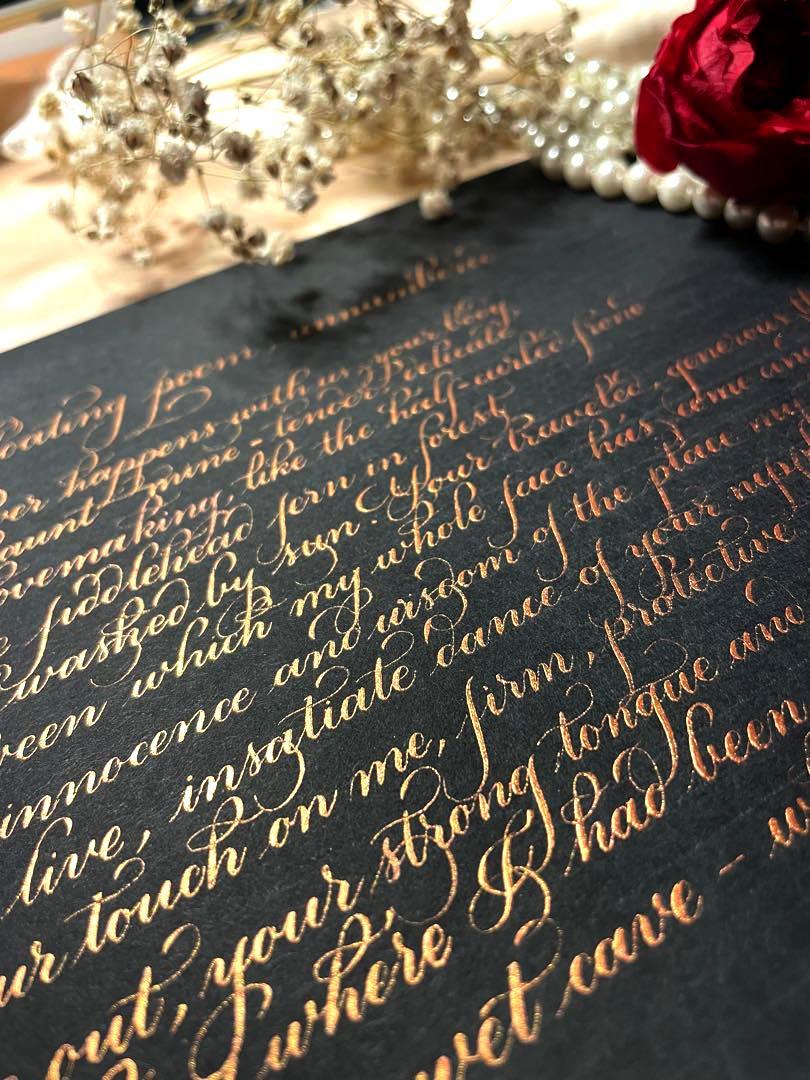 loating poem, unnumbere
ver happens with us, your body
aunt mine - tender, delicate
ovemaking, like the half-curled frond
e fiddlehead fern in forest
washed by sun. Your traveled, generous
ween which my whole face has come and
innocence and wisdom of the place my
live, insatiate dance of your nipp
ur touch on me, firm, protective
out, your strong tongue and
where I had been
wet cave -